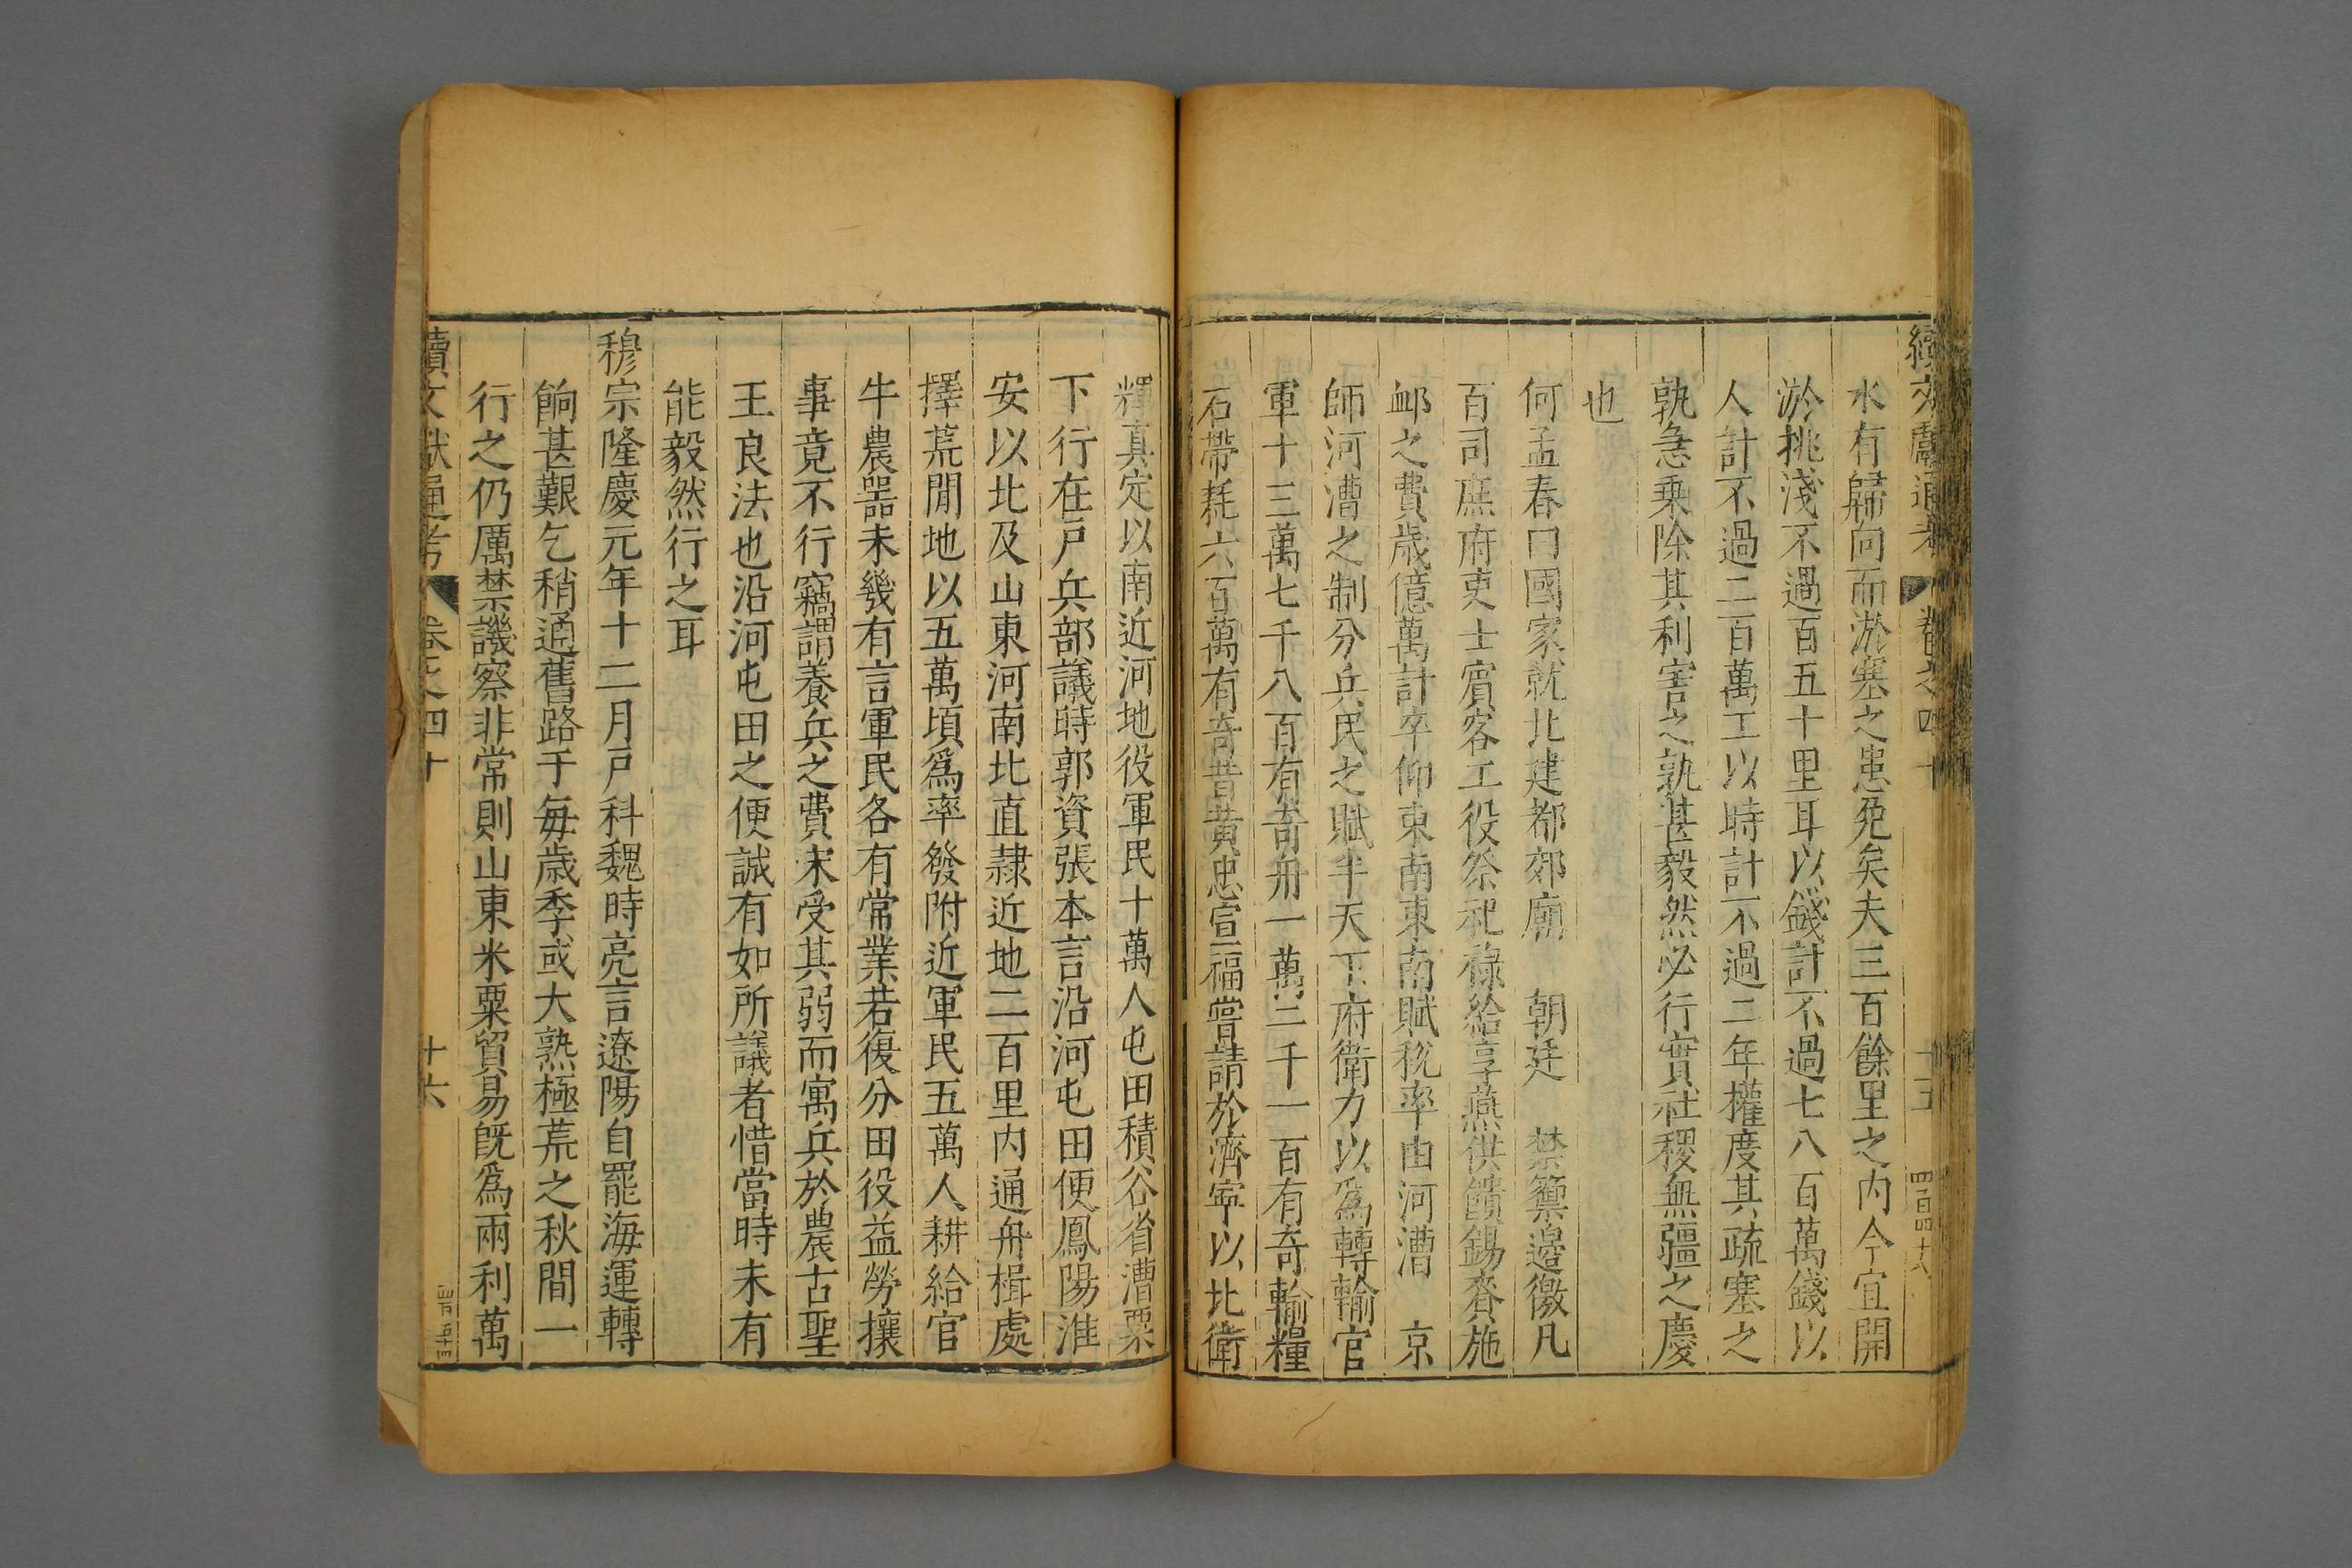 續文獻通考
卷之四十
十五
四百四十八
水有歸向而淤塞之患免矣夫三百餘里之內今宜開
淤挑淺不過百五十里耳以錢計不過七八百萬錢以
人計不過二百萬工以時計不過二年權度其疏塞之
孰急乘除其利害之孰甚毅然必行實社稷無疆之慶
也
何孟春曰國家就北建都郊廟 朝廷 禁籞邊徼凡
百司庶府吏士賓客工役祭祀祿給享燕供饋錫賚施
卹之費歲億萬計卒仰東南東南賦稅率由河漕 京
師河漕之制分兵民之賦半天下府衛力以爲轉輸官
軍十三萬七千八百有奇舟一萬二千一百有奇輸糧
石帶耗六百萬有奇昔黃忠宣福嘗請於濟寧以北衛
輝真定以南近河地役軍民十萬人屯田積谷省漕粟
下行在戶兵部議時郭資張本言沿河屯田便鳳陽淮
安以北及山東河南北直隸近地二百里內通舟楫處
擇荒閒地以五萬頃爲率發附近軍民五萬人耕給官
牛農器未幾有言軍民各有常業若復分田役益勞攘
事竟不行竊謂養兵之費末受其弱而寓兵於農古聖
王良法也沿河屯田之便誠有如所議者惜當時未有
能毅然行之耳
穆宗隆慶元年十二月戶科魏時亮言遼陽自罷海運轉
餉甚艱乞稍通舊路于每歲季或大熟極荒之秋間一
行之仍厲禁譏察非常則山東米粟貿易既爲兩利萬
續文獻通考
卷之四十
十六
四百五十四